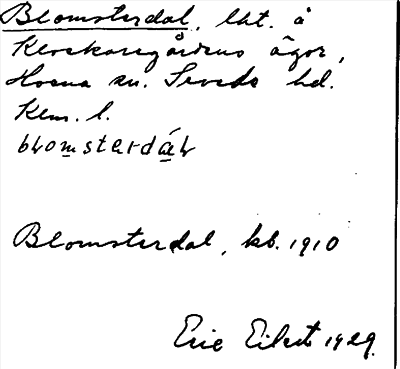 Blomsterdal, lht. å
Klockaregårdens ägor,
Horna sn. Sevede hd.
Klm. l.
blomsterdál
Blomsterdal, kb. 1910
Eric Eilert 1929.